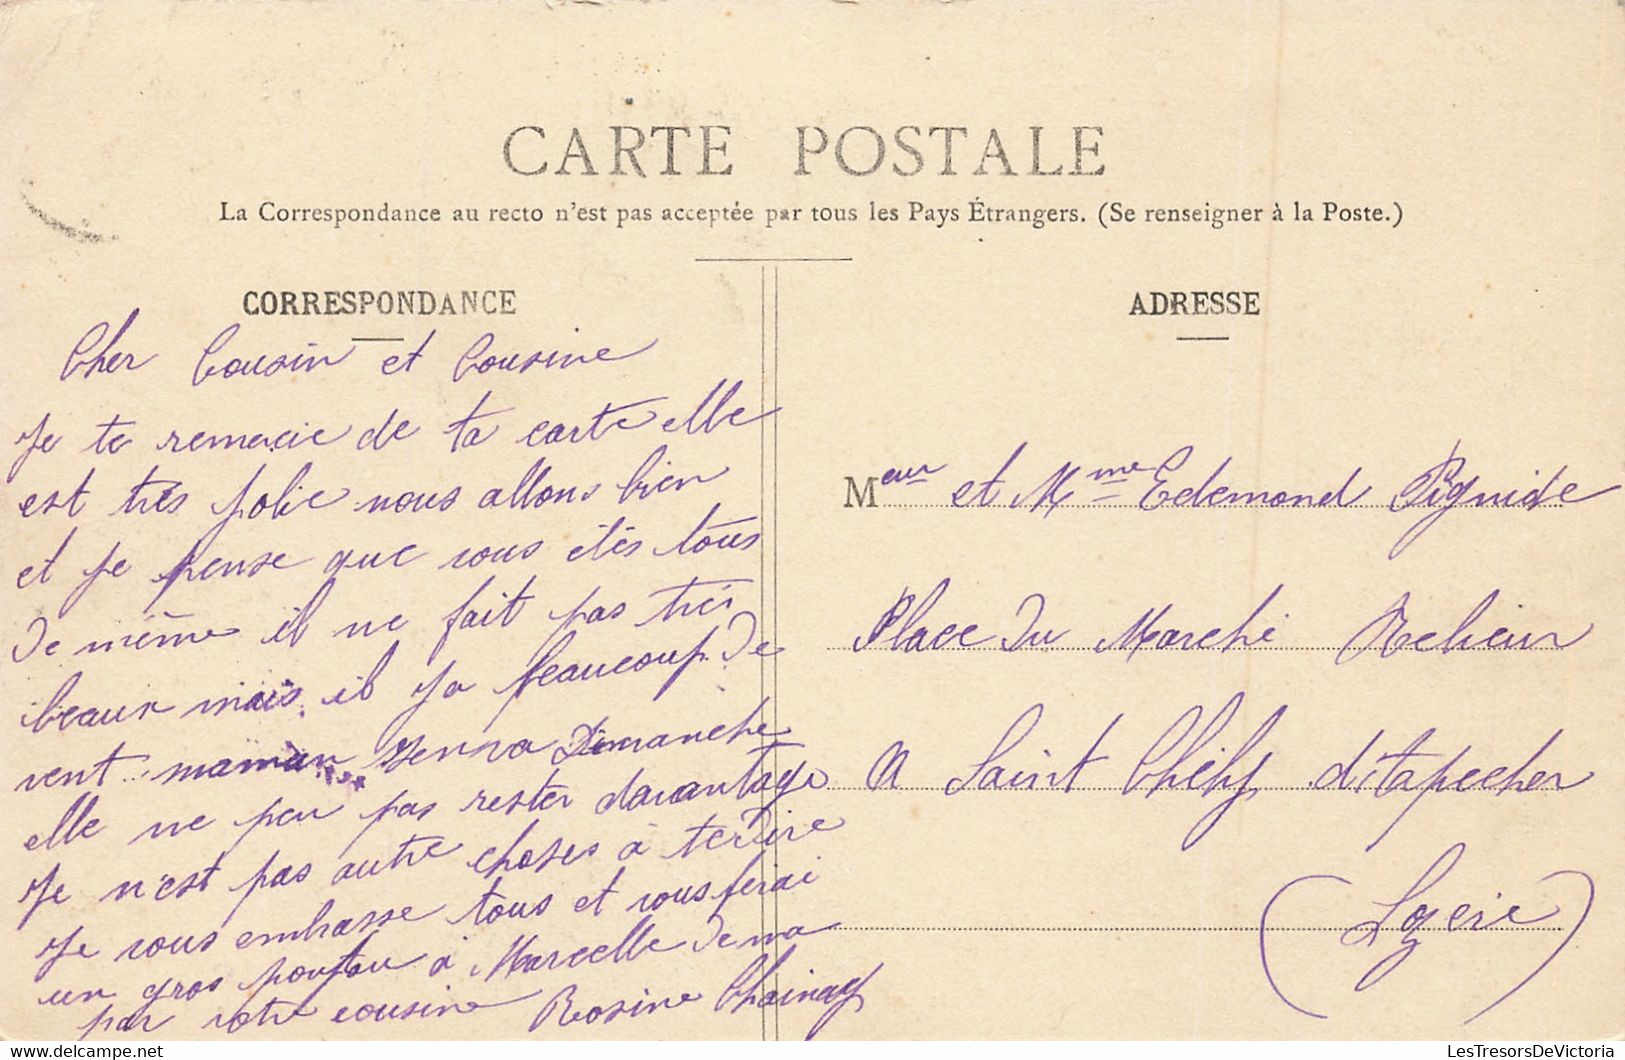 CARTE POSTALE
La Correspondance au recto n'est pas acceptée par tous les Pays Étrangers. (Se renseigner à la Poste.)
CORRESPONDANCE
Cher Cousin et Cousine
Je te remercie de ta carte elle
est très jolie nous allons bien
et je pense que vous êtês tous
de même il ne fait pas très
beaux mais il y a beaucoup de
vent maman venra Dimanche
elle ne peu pas rester davantage
Je n'est pas autre choses à te dire
Je vous embrasse tous et vous ferai
un gros poutou à Marcelle de ma
par votre cousine Rosine Chainay
ADRESSE
Meur et Mme Edemond Pignide
Place du Marché Relieur
A Saint Chély d'Apcher
(Lozère)
LesTresorsDeVictoria